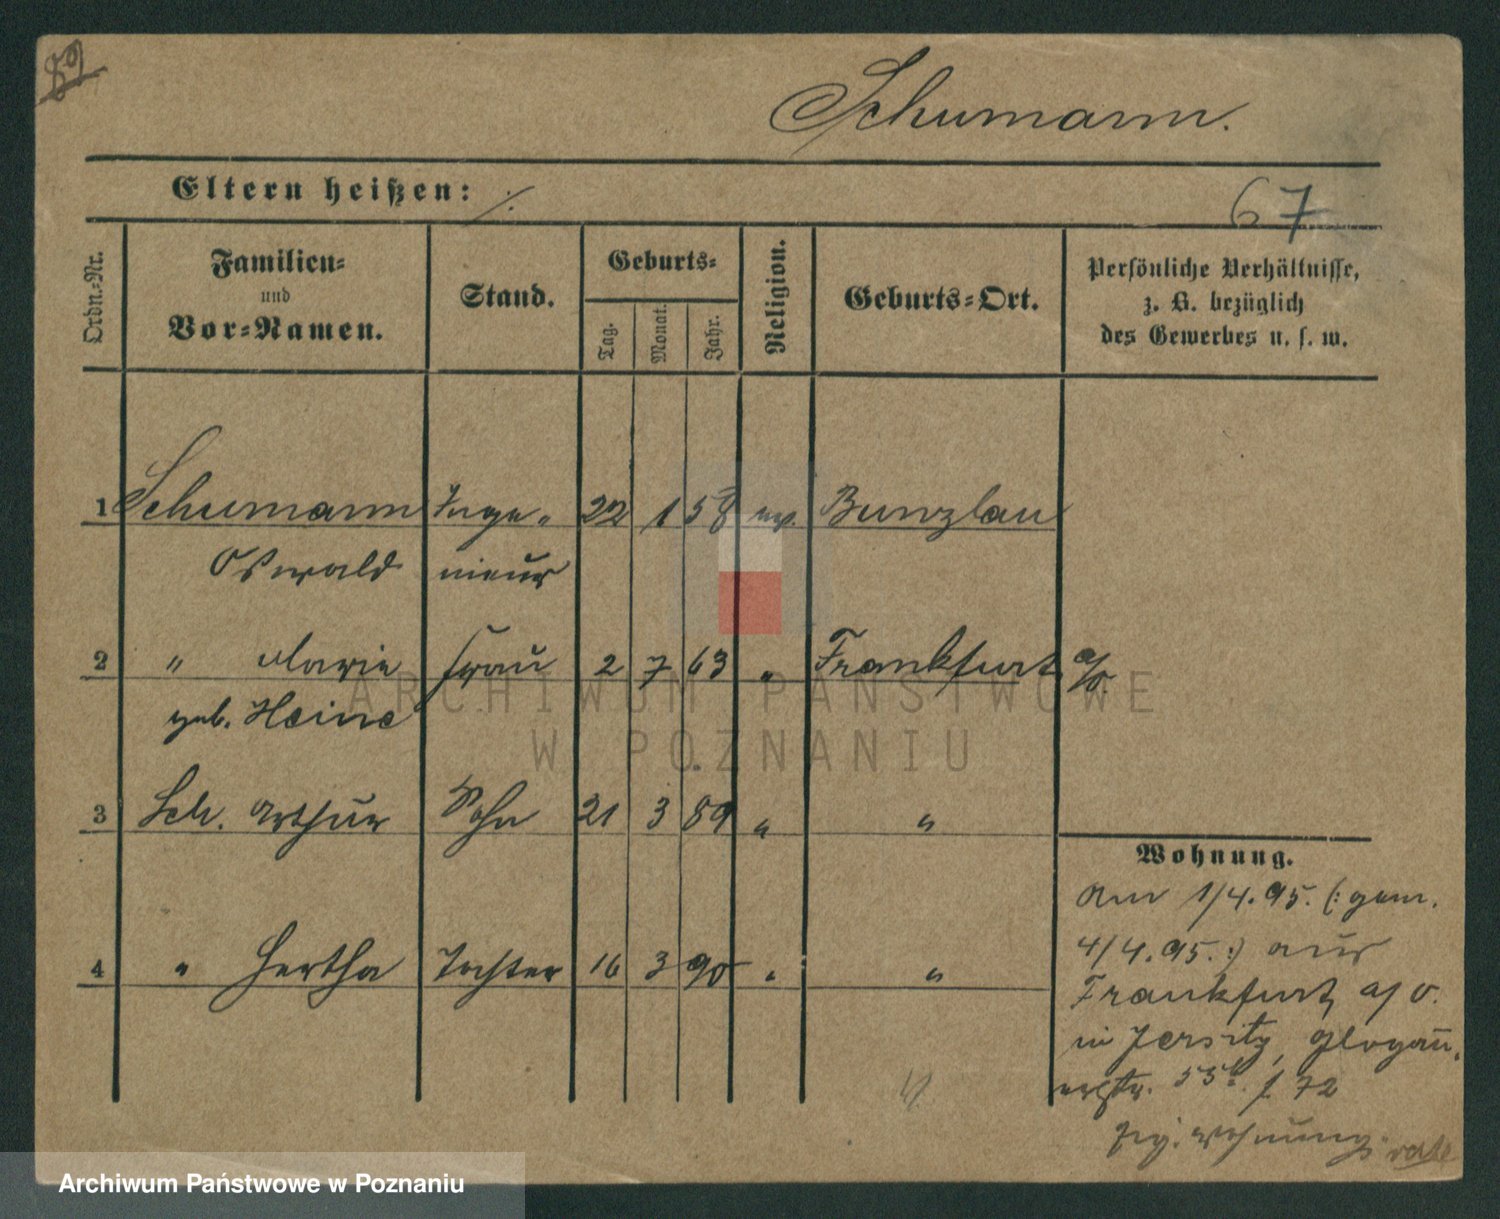 89
Schumann.
Eltern heißen: ./.
67
Ordn.-Nr.
Familien-
und
Vor-Namen.
Stand.
Geburts-
Tag.
Monat.
Jahr.
Religion.
Geburts-Ort.
Persönliche Verhältnisse,
z. B. bezüglich
des Gewerbes u. s. w.
1 Schumann Inge- 22 1 58 ev. Bunzlau
Oswald nieur
2 " Marie Frau 2 7 63 " Frankfurt a/O.
geb. Heine
ARCHIWUM PAŃSTWOWE
W POZNANIU
3 Sch. Arthur Sohn 21 3 89 " "
4 " Hertha Tochter 16 3 90 " "
Wohnung.
Am 1/4.95. (: gem.
4/4.95. :) aus
Frankfurt a/O.
in Jersitz, Glogau-
erstr. 55 f. 72
Wohnung.
Archiwum Państwowe w Poznaniu